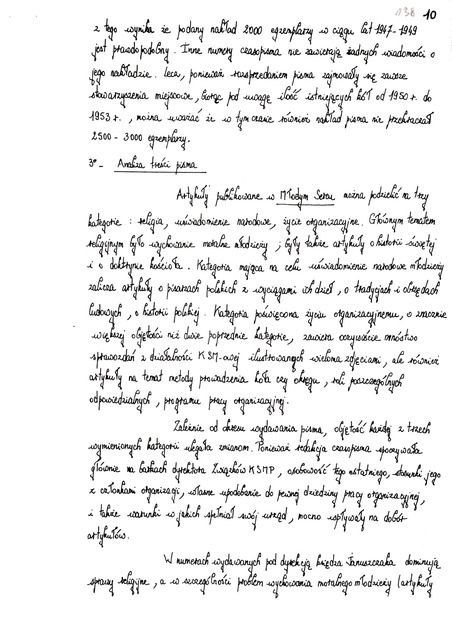 138 10
z tego wynika że podany nakład 2000 egzemplarzy w ciągu lat 1947-1949
jest prawdopodobny. Inne numery czasopisma nie zawierają żadnych wiadomości o
jego nakładzie. Lecz, ponieważ rozsprzedaniem pisma zajmowały się zawsze
stowarzyszenia miejscowe, biorąc pod uwagę ilość istniejących kół od 1950 r. do
1953 r., można uważać że w tym czasie również nakład pisma nie przekraczał
2500 - 3000 egzemplarzy.
3°- Analiza treści pisma
Artykuły publikowane w Młodym Sercu można podzielić na trzy
kategorie : religia, uświadomienie narodowe, życie organizacyjne. Głównym tematem
religijnym było wychowanie moralne młodzieży ; były także artykuły o historii świętej
i o doktrynie kościoła. Kategoria mająca na celu uświadomienie narodowe młodzieży
zawiera artykuły o pisarzach polskich z wyciągami ich dzieł, o tradycjach i obrzędach
ludowych, o historii polskiej. Kategoria poświęcona życiu organizacyjnemu, o znacznie
większej objętości niż dwie poprzednie kategorie, zawiera oczywiście mnóstwo
sprawozdań z działalności KSM-owej ilustrowanych wieloma zdjęciami, ale również
artykuły na temat metody prowadzenia koła czy okręgu, roli poszczególnych
odpowiedzialnych, programu pracy organizacyjnej.
Zależnie od okresu wydawania pisma, objętość każdej z trzech
wymienionych kategorii ulegała zmianom. Ponieważ redakcja czasopisma spoczywała
głównie na barkach dyrektora Związków KSMP, osobowość tego ostatniego, stosunki jego
z członkami organizacji, własne upodobanie do pewnej dziedziny pracy organizacyjnej,
i także warunki w jakich spełniał swój urząd, mocno wpływały na dobór
artykułów.
W numerach wydawanych pod dyrekcją księdza Januszczaka dominują
sprawy religijne, a w szczególności problem wychowania moralnego młodzieży (artykuły